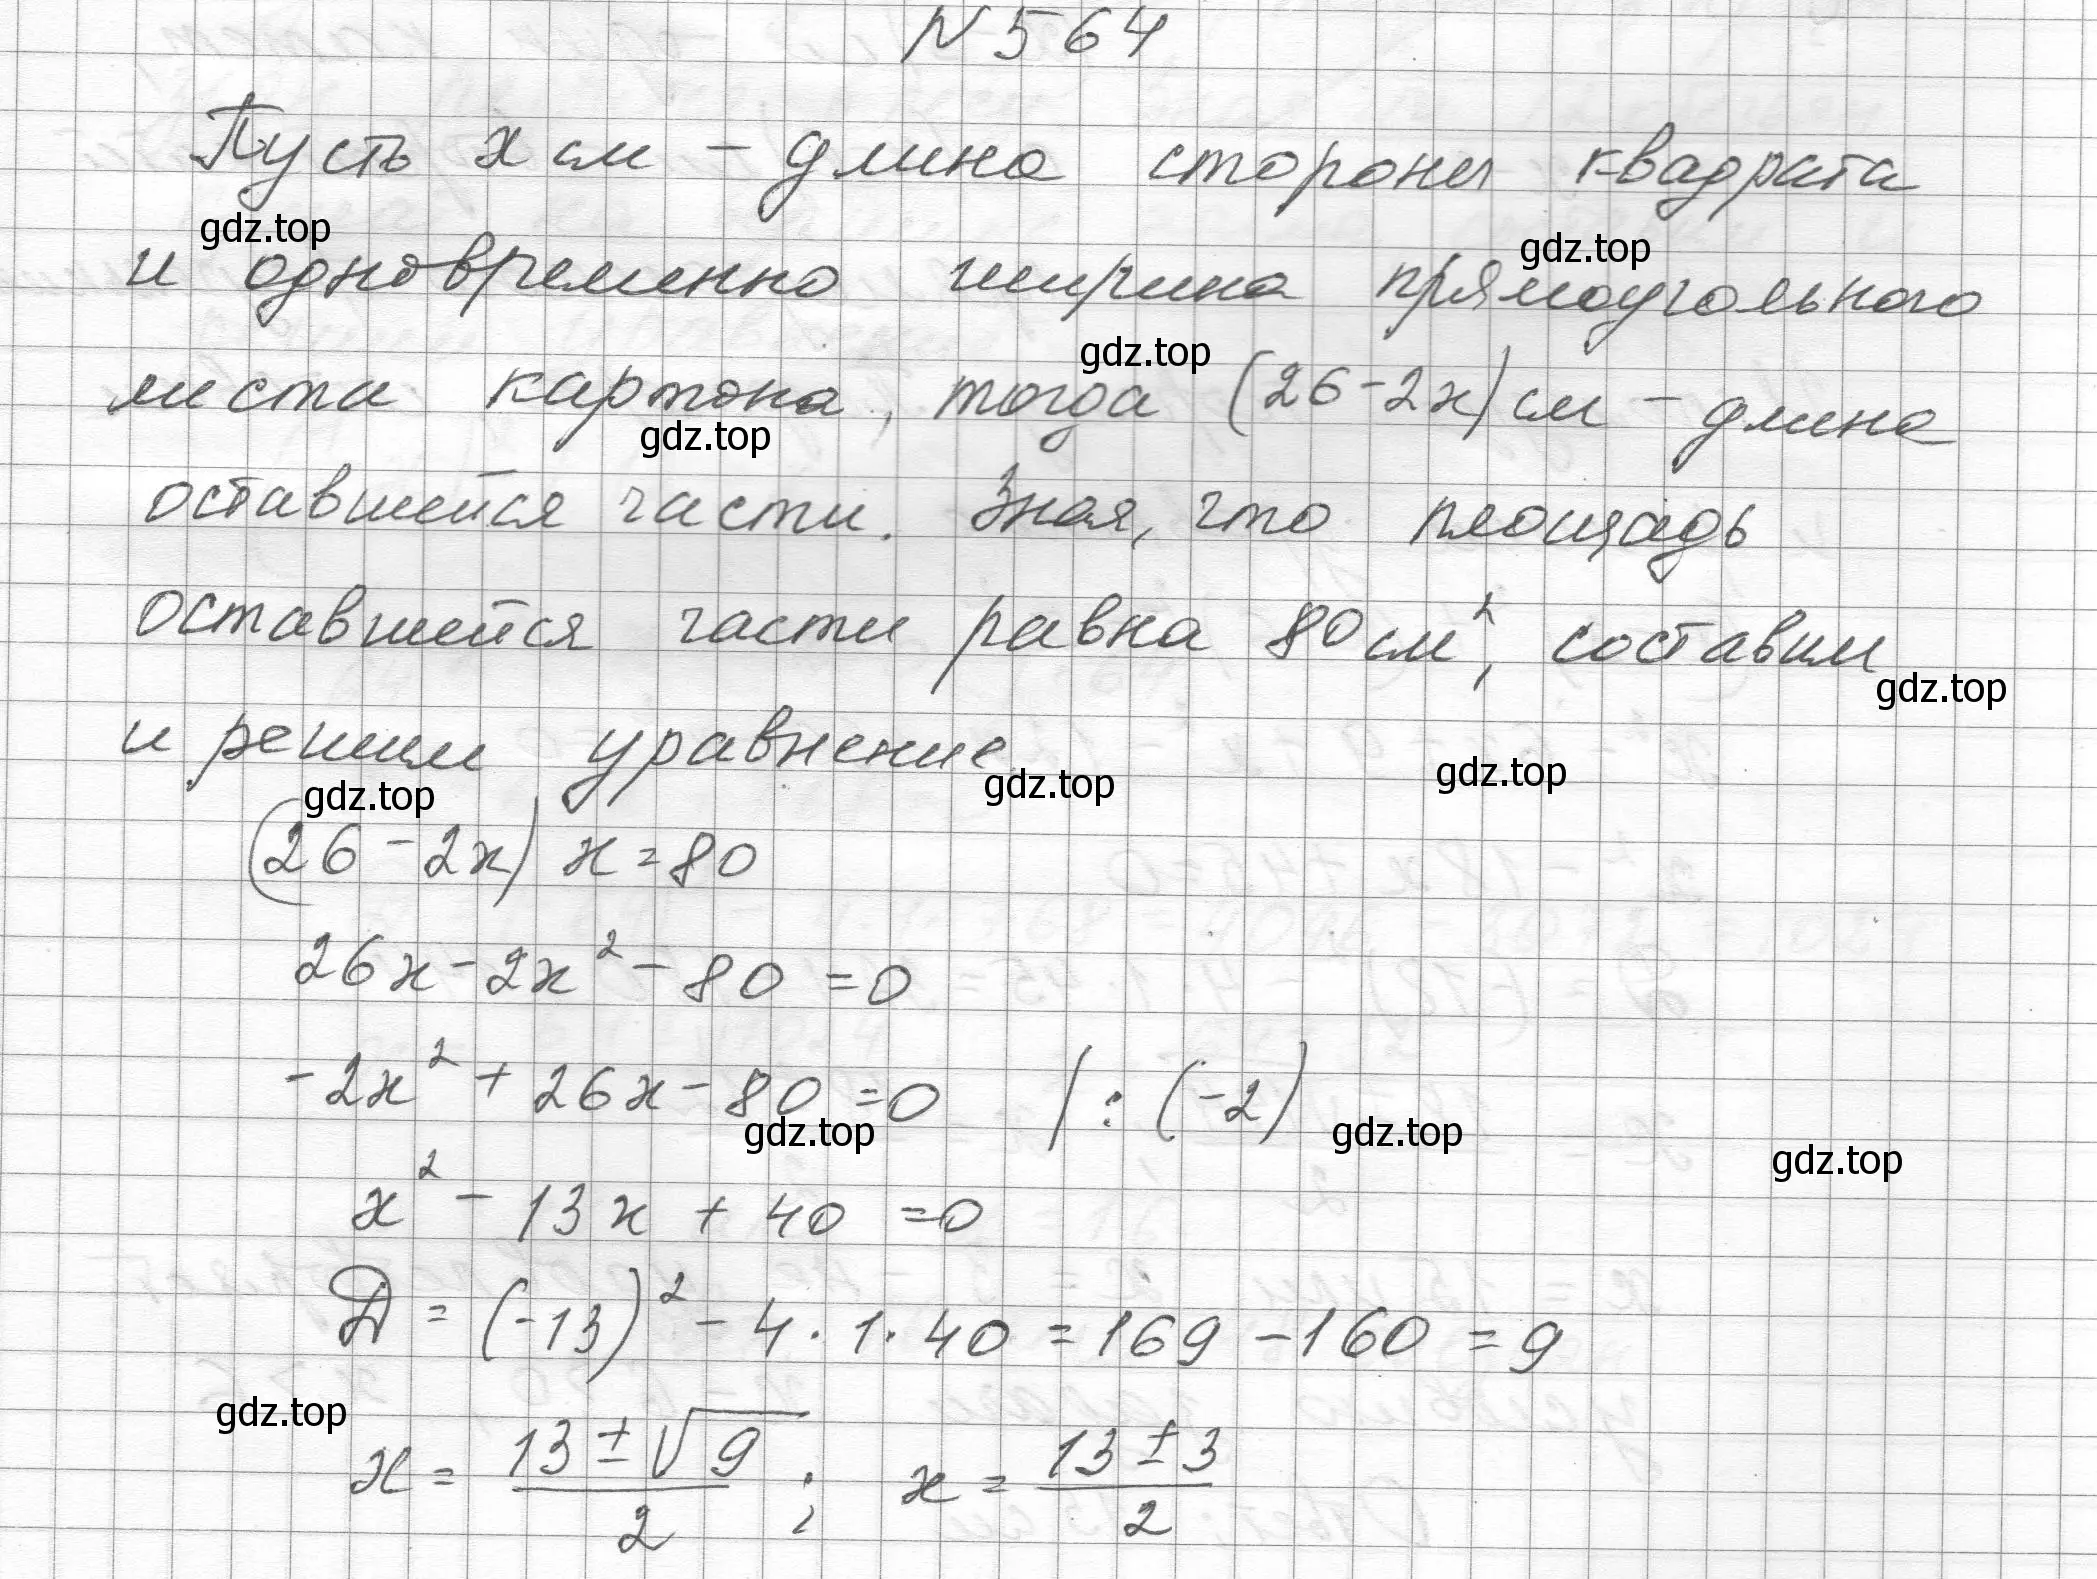 N 564
Пусть x см – длина стороны квадрата
gdz.top
gdz.top
и одновременно ширина прямоугольного
gdz.top
листа картона, тогда (26-2x) см – длина
gdz.top
оставшейся части. Зная, что площадь
оставшейся части равна 80 см², составим
gdz.top
и решим уравнение
gdz.top
gdz.top
gdz.top
(26-2x) x = 80
26x - 2x² - 80 = 0
-2x² + 26x - 80 = 0 | : (-2)
gdz.top
gdz.top
gdz.top
x² - 13x + 40 = 0
Д = (-13)² - 4 · 1 · 40 = 169 - 160 = 9
gdz.top
x = (13 ± √9)/2 ; x = (13 ± 3)/2